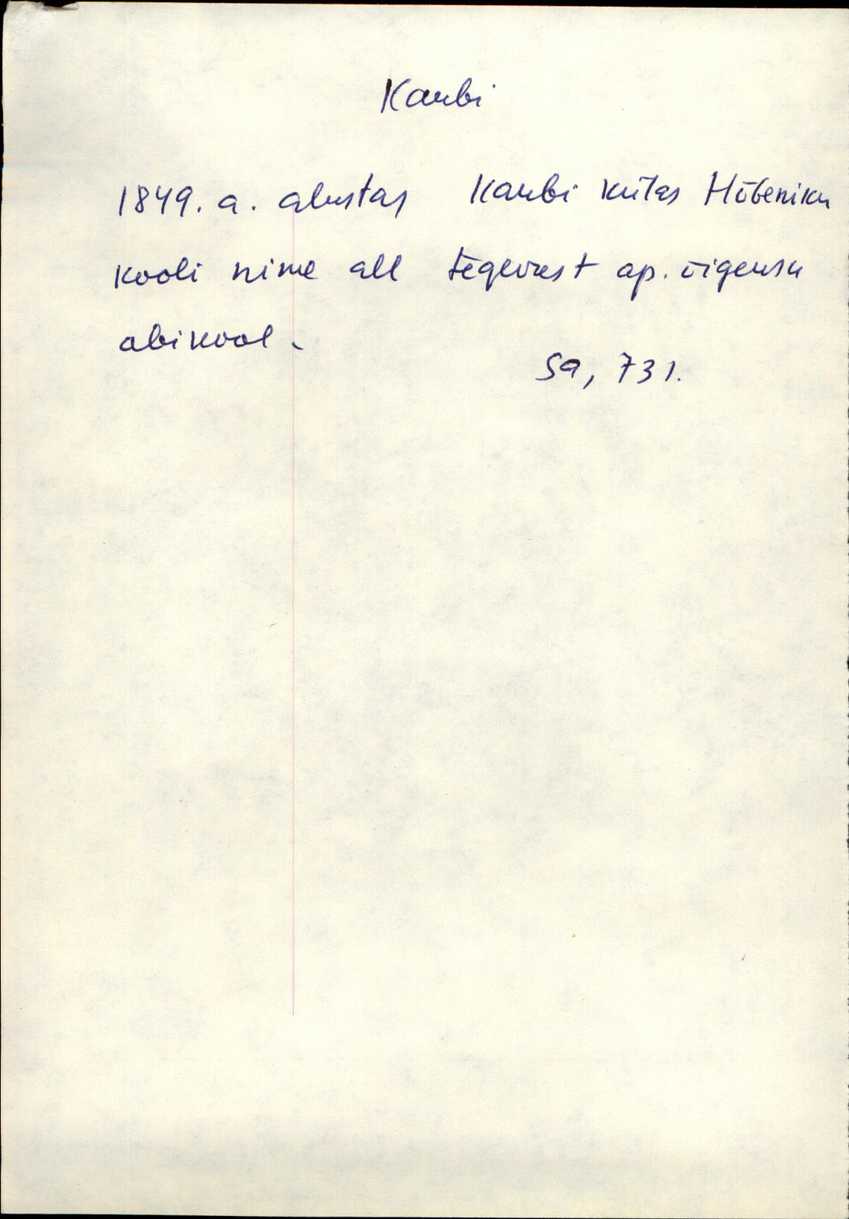 Kaubi
1849. a. alustas Kaubi külas Hõbeniku
kooli nime all tegevust ap. õigeusu
abikool.
Sa, 731.